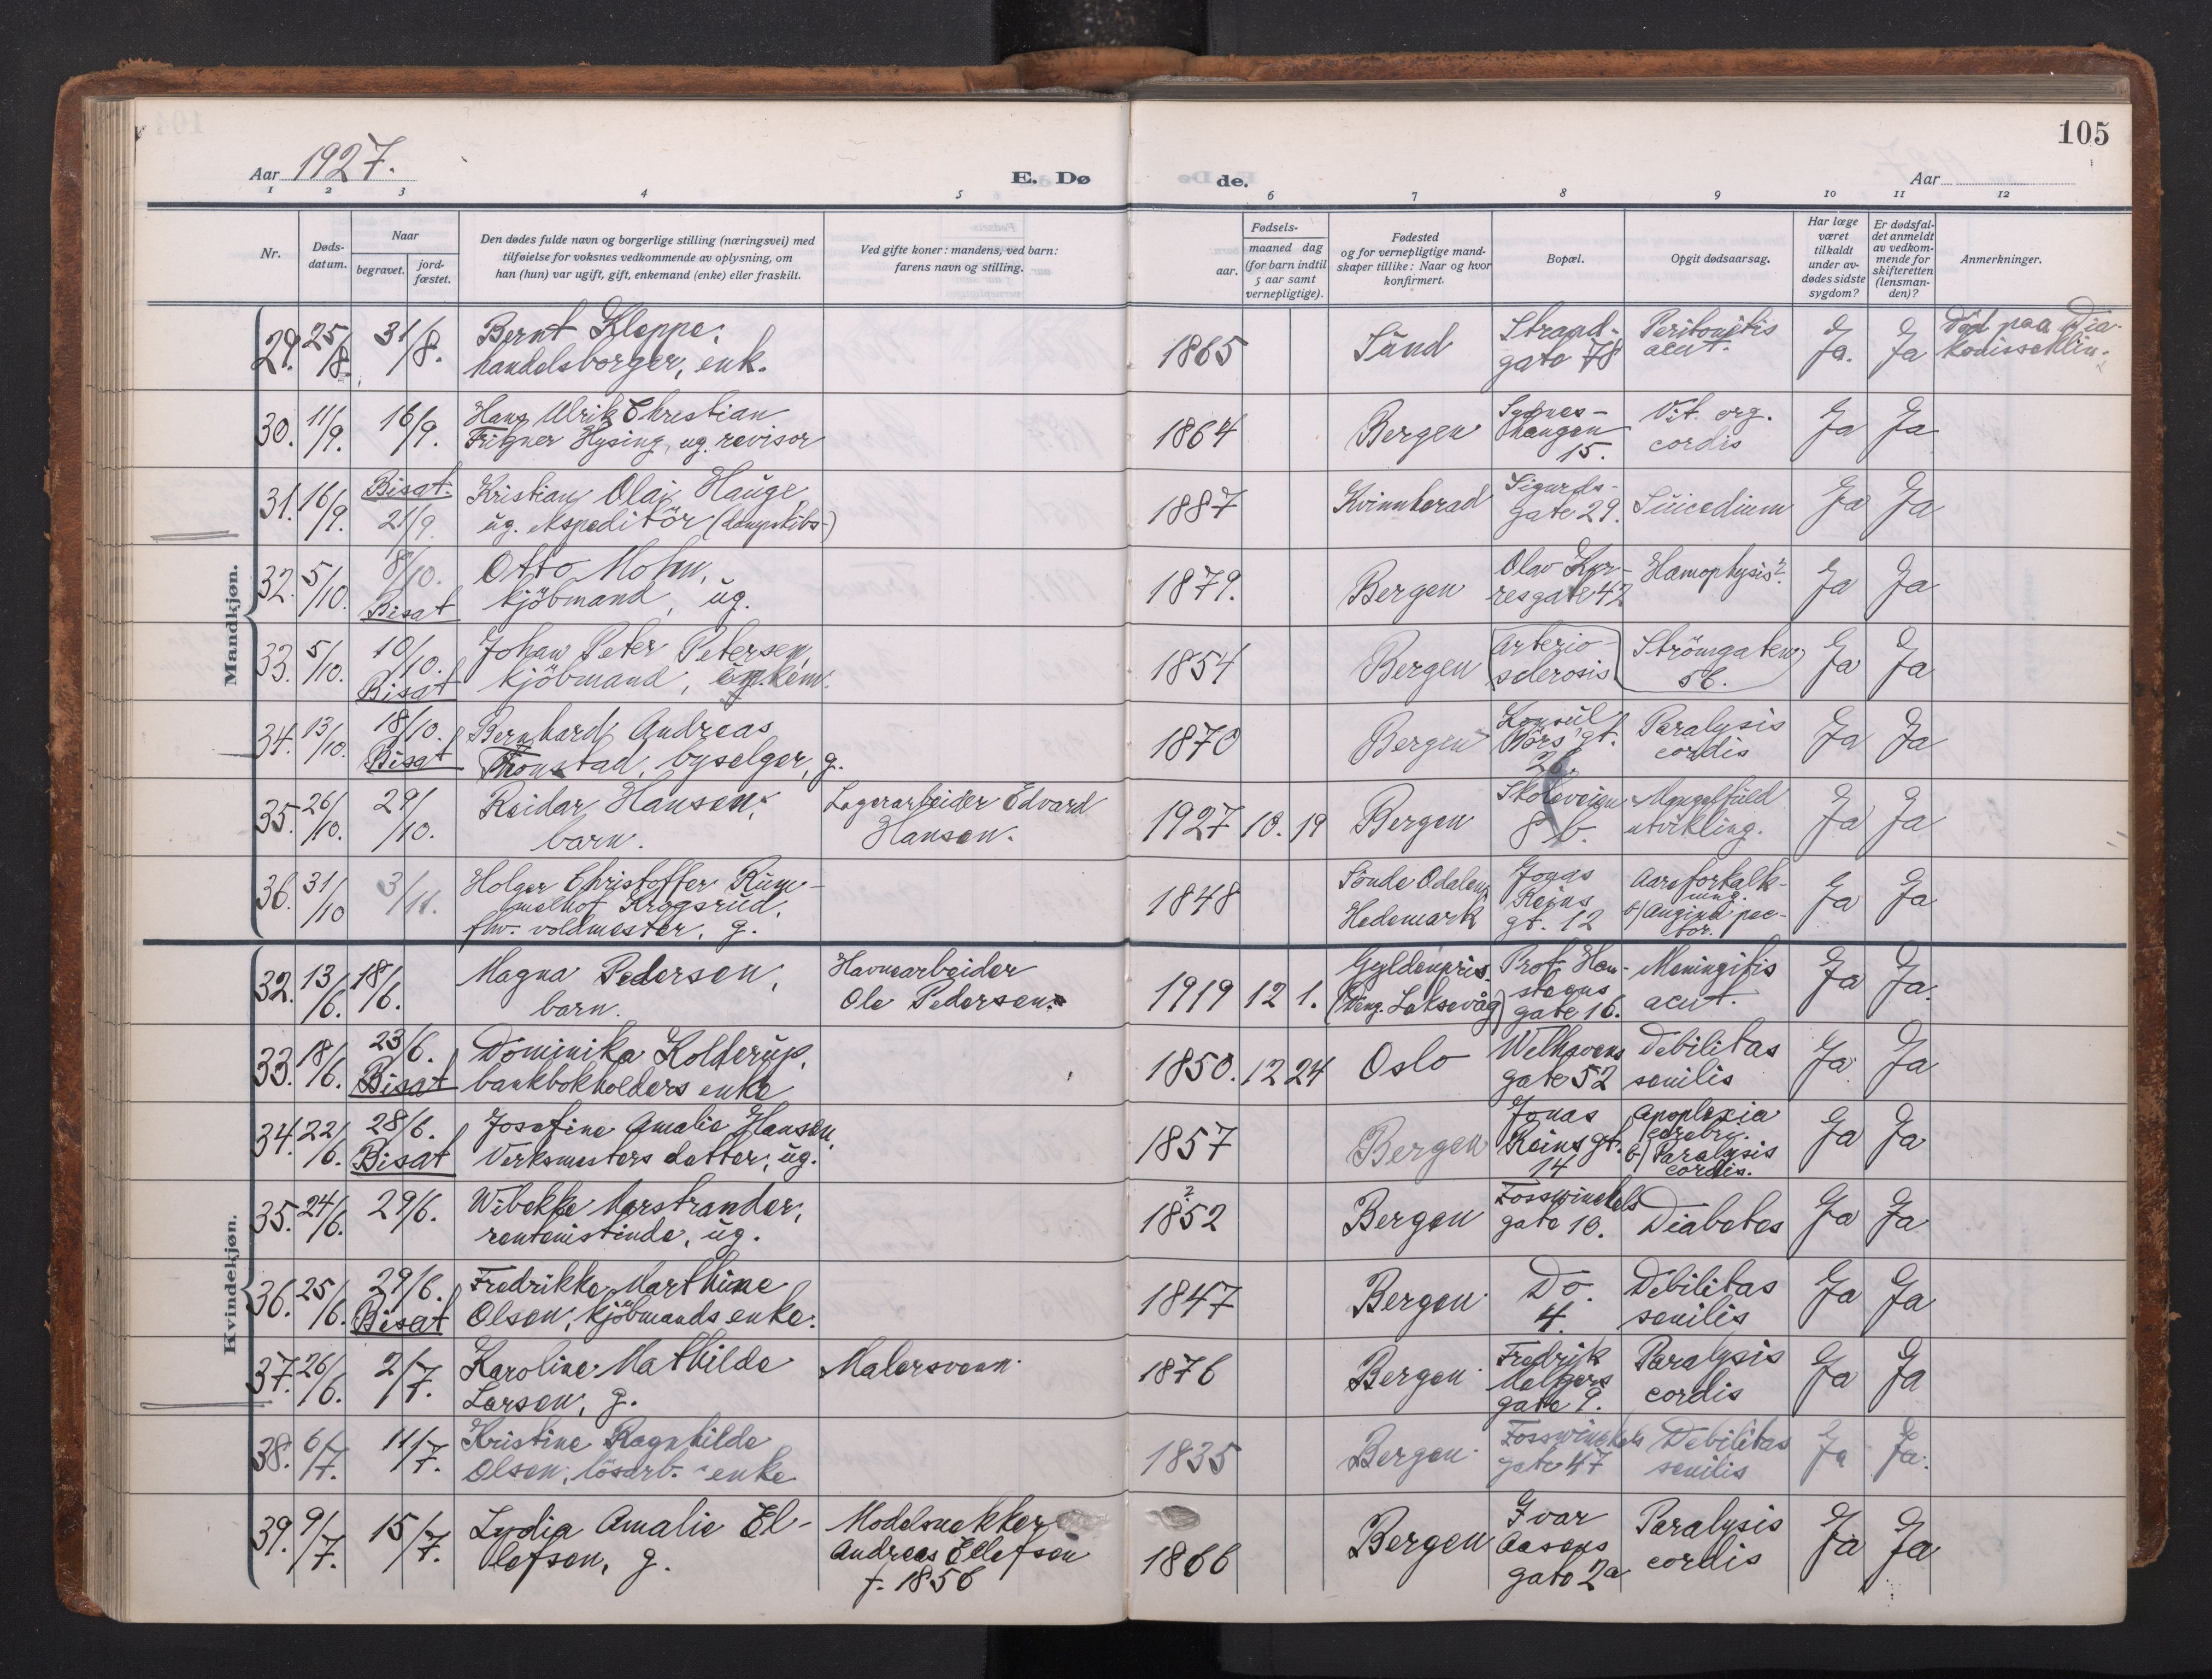 105
Aar 1927.
E. Dø
de.
Aar
1 2 3 4 5 6 7 8 9 10 11 12
Nr.
Døds-
datum.
Naar
begravet.
jord-
fæstet.
Den dødes fulde navn og borgerlige stilling (næringsvei) med
tilføielse for voksnes vedkommende av oplysning, om
han (hun) var ugift, gift, enkemand (enke) eller fraskilt.
Ved gifte koner: mandens, ved barn:
farens navn og stilling.
Fødsels-
aar.
maaned dag
(for barn indtil
5 aar samt
vernepligtige).
Fødested
og for vernepligtige mand-
skaper tillike: Naar og hvor
konfirmert.
Bopæl.
Opgit dødsaarsag.
Har læge
været
tilkaldt
under av-
dødes sidste
sygdom?
Er dødsfal-
det anmeldt
av vedkom-
mende for
skifteretten
(lensman-
den)?
Anmerkninger.
Mandkjøn.
29. 25/8. 31/8. Bernt Kleppe,
handelsborger, enk.
1865 Sund
Strand-
gate 78
Peritonitis
acut.
Ja. Ja
Död paa Dia-
konisseklin.
30. 11/9. 16/9. Hans Ulrik Christian
Frigner Hysing, ug. revisor
1864 Bergen
Sydnes-
haugen
15.
Vit. org.
cordis
Ja Ja
31. 16/9. Bisat.
21/9.
Kristian Olai Hauge,
ug. ekspeditör (dampskibs-)
1887 Kvinnherad
Sigurds-
gate 29.
Suicedium
Ja Ja
32. 5/10. 8/10.
Bisat
Otto Mohn,
kjöbmand, ug.
1879. Bergen
Olav Kyr-
resgate 42
Hämophysis?
Ja Ja
33. 5/10. 10/10.
Bisat
Johan Peter Petersen,
kjöbmand, enkem.
1854 Bergen
Arterio-
sclerosis
Strömgaten
56.
Ja Ja
34. 13/10. 18/10.
Bisat
Bernhard Andreas
Thonstad, byselger, g.
1870 Bergen
Konsul
Börs gt.
Paralysis
cordis
Ja Ja
35. 26/10. 29/10. Reidar Hansen,
barn.
Lagerarbeider Edvard
Hansen.
1927 10. 19 Bergen
Skoleveien
8 b.
Mangelfuld
utvikling.
Ja Ja
36. 31/10 3/11. Holger Christoffer Rum-
melhof Krogsrud,
fhv. voldmester, g.
1848
Söndre Odalen,
Hedemark
Jonas
Reins
gt. 12
Aareforkalk-
ning.
b) Angina pec-
tor.
Ja Ja
Kvindekjøn.
32. 13/6. 18/6. Magna Pedersen,
barn.
Havnearbeider
Ole Pedersen.
1919 12 1.
Gyldenpris
(Deng. Laksevåg)
Prof. Han-
steens
gate 16.
Meningitis
acut.
Ja Ja.
33. 18/6. 23/6.
Bisat
Dominika Kolderup,
bankbokholders enke
1850. 12 24 Oslo
Welhavens
gate 52
Debilitas
senilis
Ja Ja
34. 22/6. 28/6.
Bisat
Josefine Amalie Hansen,
Verksmesters datter, ug.
1857 Bergen
Jonas
Reins gt.
14
Apoplexia
cerebri.
b) Paralysis
cordis.
Ja Ja
35. 24/6. 29/6. Wibekke Marstrander,
rentenistinde, ug.
1852
2
Bergen
Fosswinckels
gate 10.
Diabetes
Ja Ja
36. 25/6. 29/6.
Bisat
Fredrikke Marthine
Olsen, kjöbmands enke.
1847 Bergen
Do.
4.
Debilitas
senilis
Ja Ja
37. 26/6. 2/7. Karoline Mathilde
Larsen, g.
Malersvenn
1876 Bergen
Fredrik
Meltzers
gate 9.
Paralysis
cordis
Ja Ja
38. 6/7. 11/7. Kristine Ragnhilde
Olsen, lösarb. enke
1835 Bergen
Fosswinckels
gate 47
Debilitas
senilis
Ja Ja.
39. 9/7. 15/7. Lydia Amalie El-
lefsen, g.
Modelsnekker
Andreas Ellefsen
f. 1856
1866 Bergen
Ivar
Aasens
gate 2a
Paralysis
cordis
Ja Ja